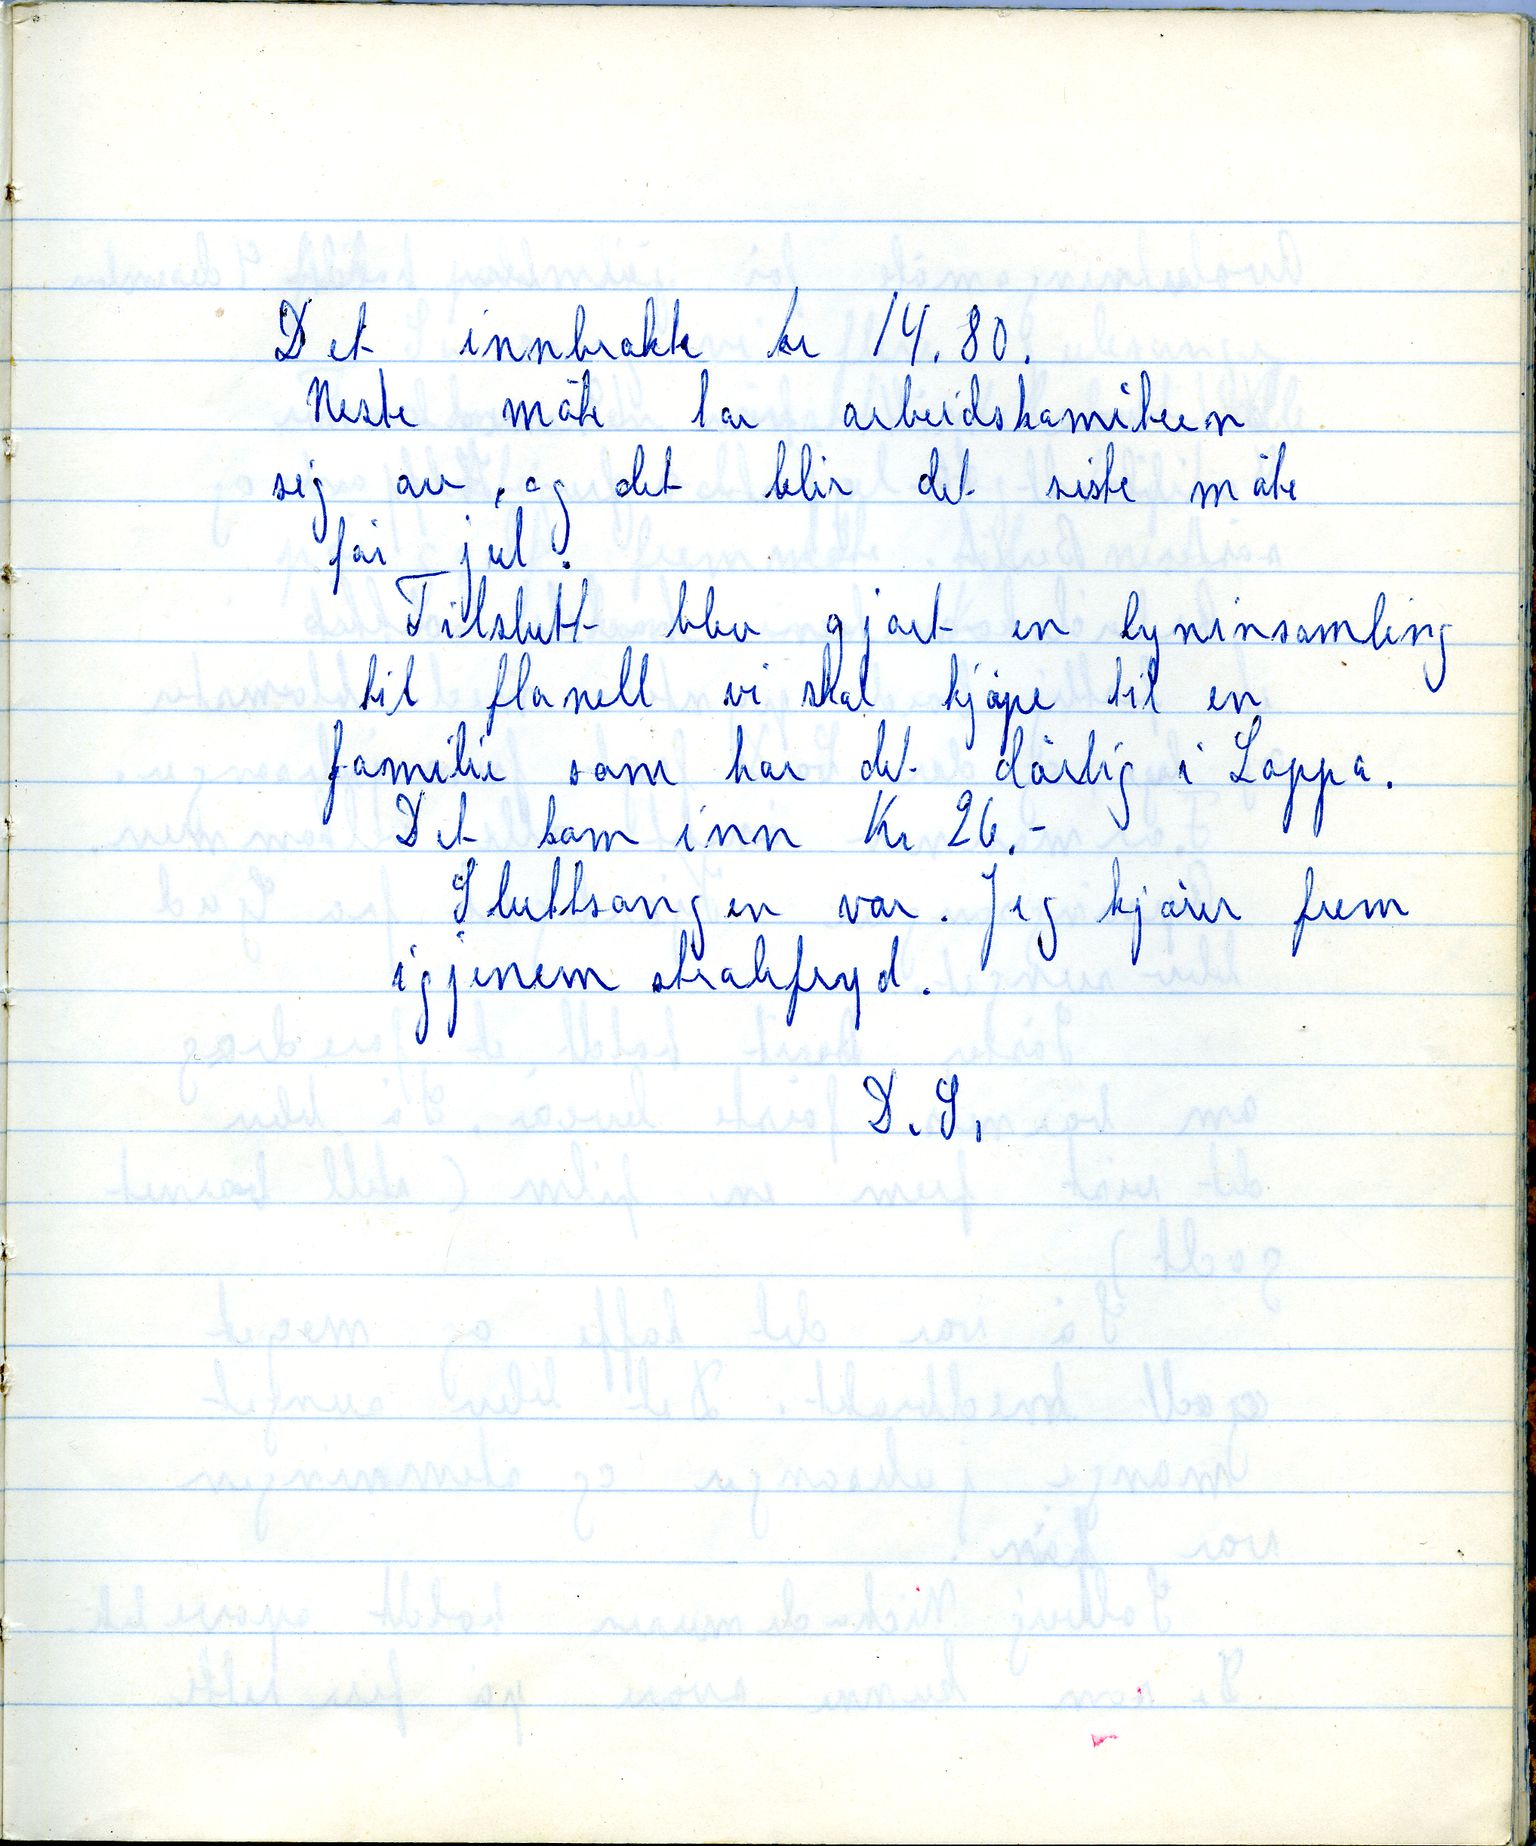 Det innbrakte kr 14.80.
Neste møte tar arbeidskomiteen
sig av, og det blir det siste møte
før jul.
Tilslutt blev gjort en lyninsamling
til flanell vi skal kjøpe til en
familie som har det dårlig i Loppa.
Det kom inn Kr 26.-
Sluttsangen var. Jeg kjører frem
igjenem strålefryd.
D.S.